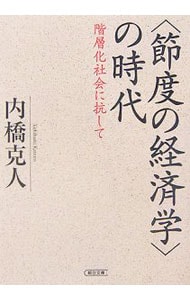 〈節度の経済学〉
の時代
階層化社会に抗して
内橋克人
Uchihashi Katsuto
朝日文庫